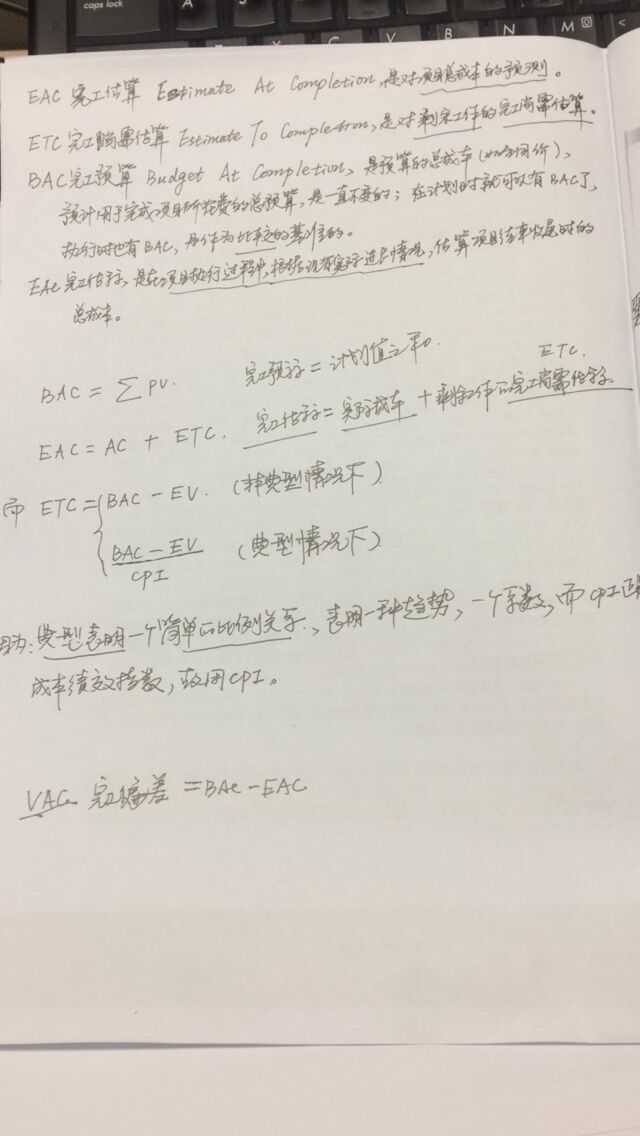 caps lock
A
S
C
V
B
N
M
<
EAC 完工估算 Estimate At Completion, 是对项目总成本的预测。
ETC 完工尚需估算 Estimate To Completion, 是对剩余工作的完工尚需估算。
BAC 完工预算 Budget At Completion, 是预算的总成本
预计用于完成项目所花费的总预算, 是一直不变的; 在计划时就可以有BAC了,
执行时也有BAC, 是作为比较的基准的。
EAC 完工估算, 是在项目执行过程中, 根据 实际进展情况, 估算项目结束收尾时的
总成本。
BAC = ∑ PV. 完工预算 = 计划值之和
ETC.
EAC = AC + ETC. 完工估算 = 实际成本 + 剩余工作的完工尚需估算.
而 ETC = BAC - EV. (非典型情况下)
BAC - EV / CPI (典型情况下)
因为: 典型表明一个简单的比例关系, 表明一种趋势, 一个系数, 而 CPI 正是
成本绩效指数, 故用CPI。
VAC 完工偏差 = BAC - EAC